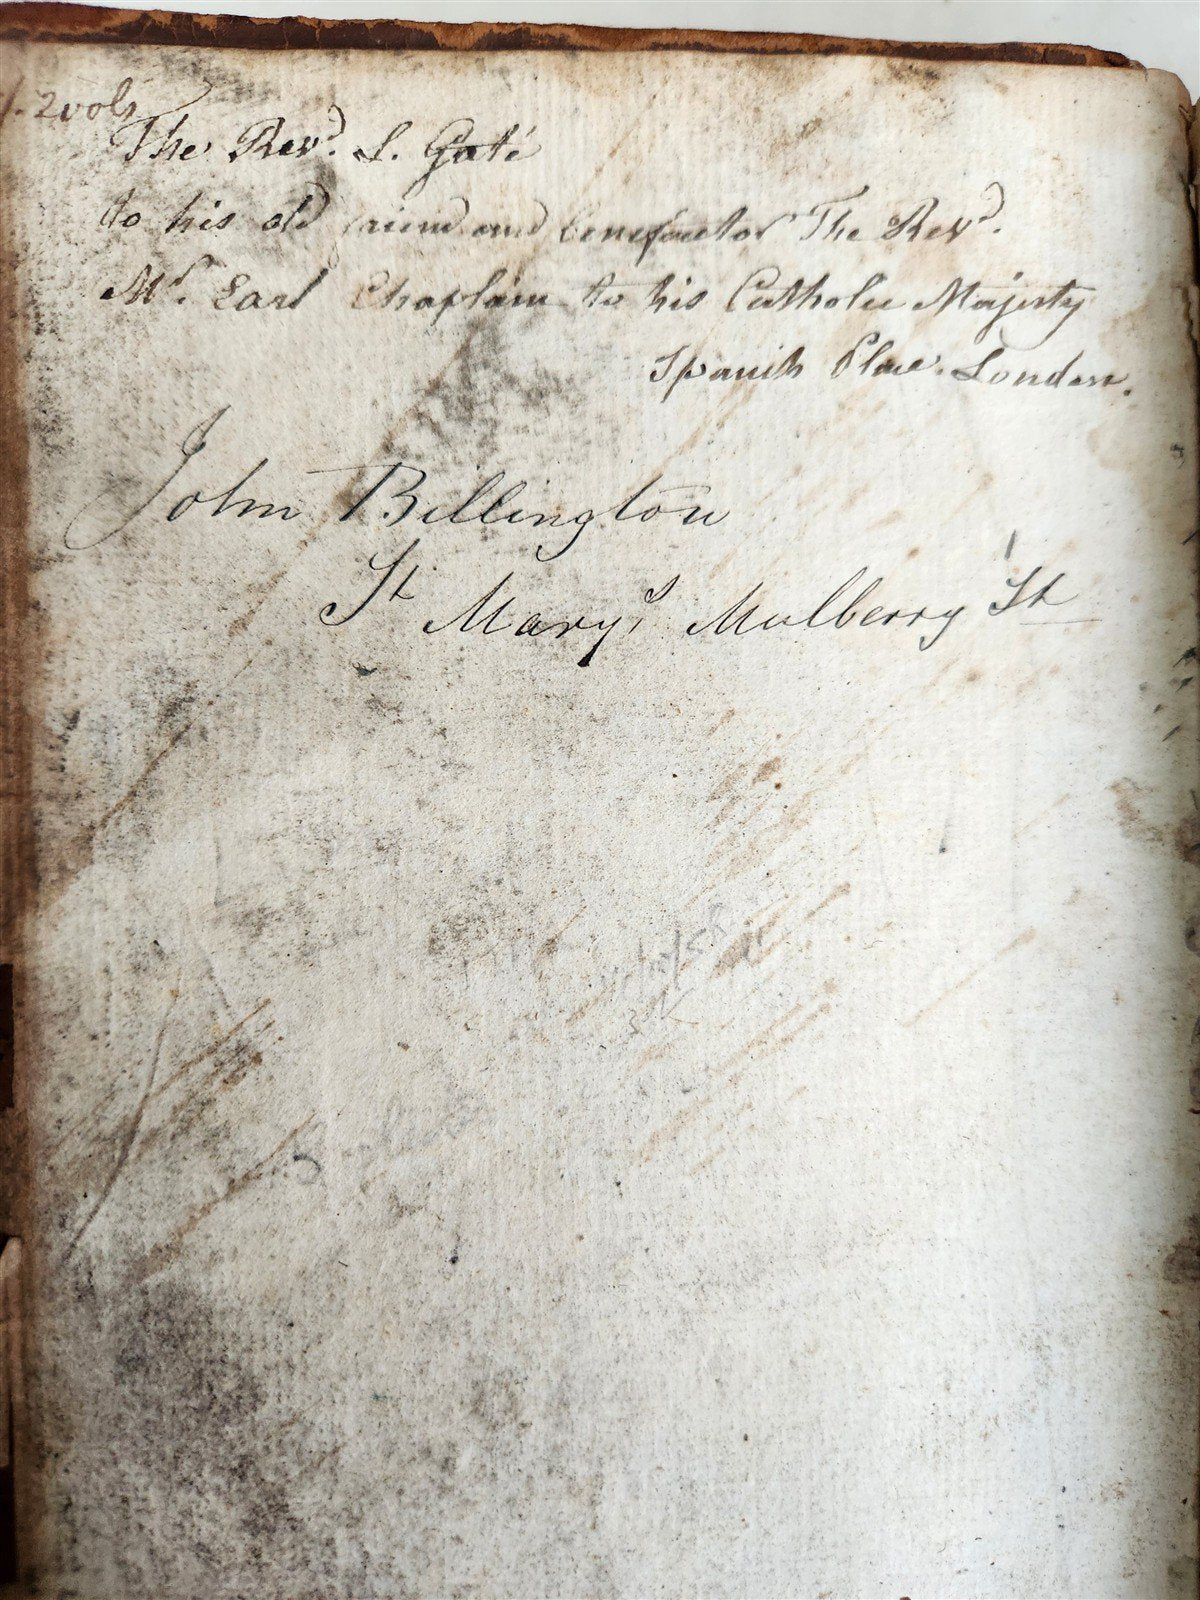 2 vols
The Revd. L. Gaté
to his old friend and benefactor The Revd.
Mr. Earl Chaplain to his Catholic Majesty
Spanish Place. London.
John Billington
St Mary's Mulberry St